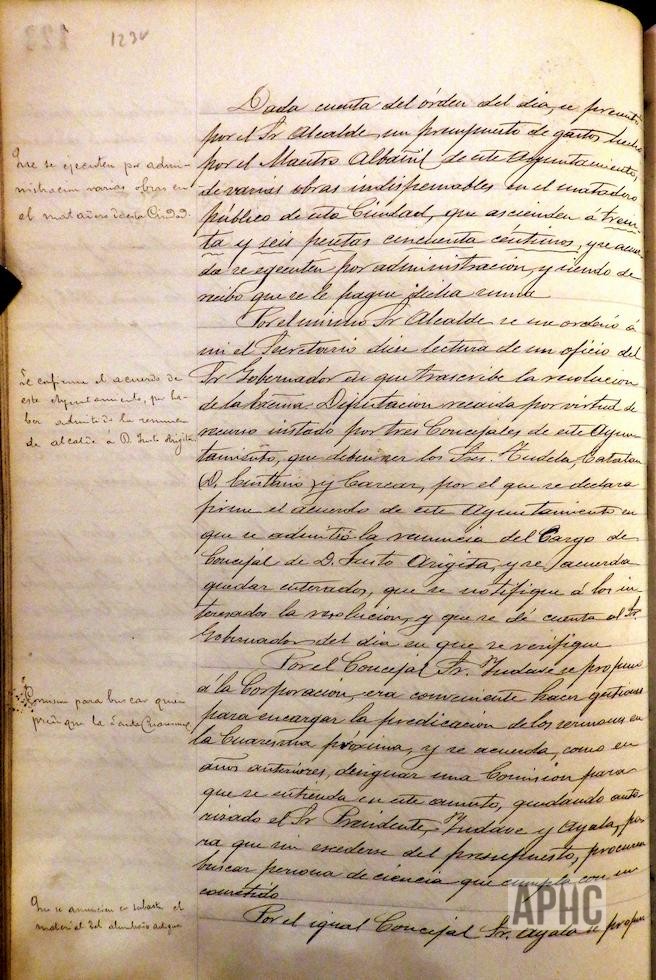 123v
Dada cuenta del órden del dia, se presentó
por el Sr. Alcalde, un presupuesto de gastos hecho
por el Maestro Albañil de este Ayuntamiento,
de varias obras indispensables en el matadero
público de esta Ciudad, que ascienden á trein-
ta y seis pesetas cincuenta céntimos, y se acuer-
da se ejecuten por administracion, y siendo de
recibo que se le pague dicha suma
Por el mismo Sr. Alcalde se me ordenó á
mi el Secretario diese lectura de un oficio del
Sr. Gobernador en que trascribe la resolucion
de la Excma. Diputacion recaida por virtud de
recurso instado por tres Concejales de este Ayun-
tamiento, que deben ser los Sres. Tudela, Catalan
(D. Cristino) y Carcar, por el que se declara
firme el acuerdo de este Ayuntamiento en
que se admitió la renuncia del Cargo de
Concejal de D. Justo Arigita, y se acuerda
quedar enterados, que se notifique á los in-
teresados la resolucion, y que se dé cuenta al Sr.
Gobernador del dia en que se verifique
Por el Concejal Sr. Yndave se propuso
á la Corporacion, era conveniente hacer gestiones
para encargar la predicacion de los sermones en
la Cuaresma próxima, y se acuerda, como en
años anteriores, designar una Comision para
que se entienda en este asunto, quedando auto-
rizado el Sr. Presidente, Yndave y Ayala, pa-
ra que sin escederse del presupuesto, procuren
buscar persona de ciencia que cumpla con su
cometido
Por el igual Concejal Sr. Ayala se propuso
Que se ejecuten por admi-
nistracion varias obras en
el matadero de esta Ciudad.
Se confirma el acuerdo de
este Ayuntamiento, por ha-
ber admitido la renuncia
de alcalde á D. Justo Arigita
Comision para buscar quien
predique la Santa Cuaresma
Que se anuncie en subasta el
material del alumbrado antiguo
APHC